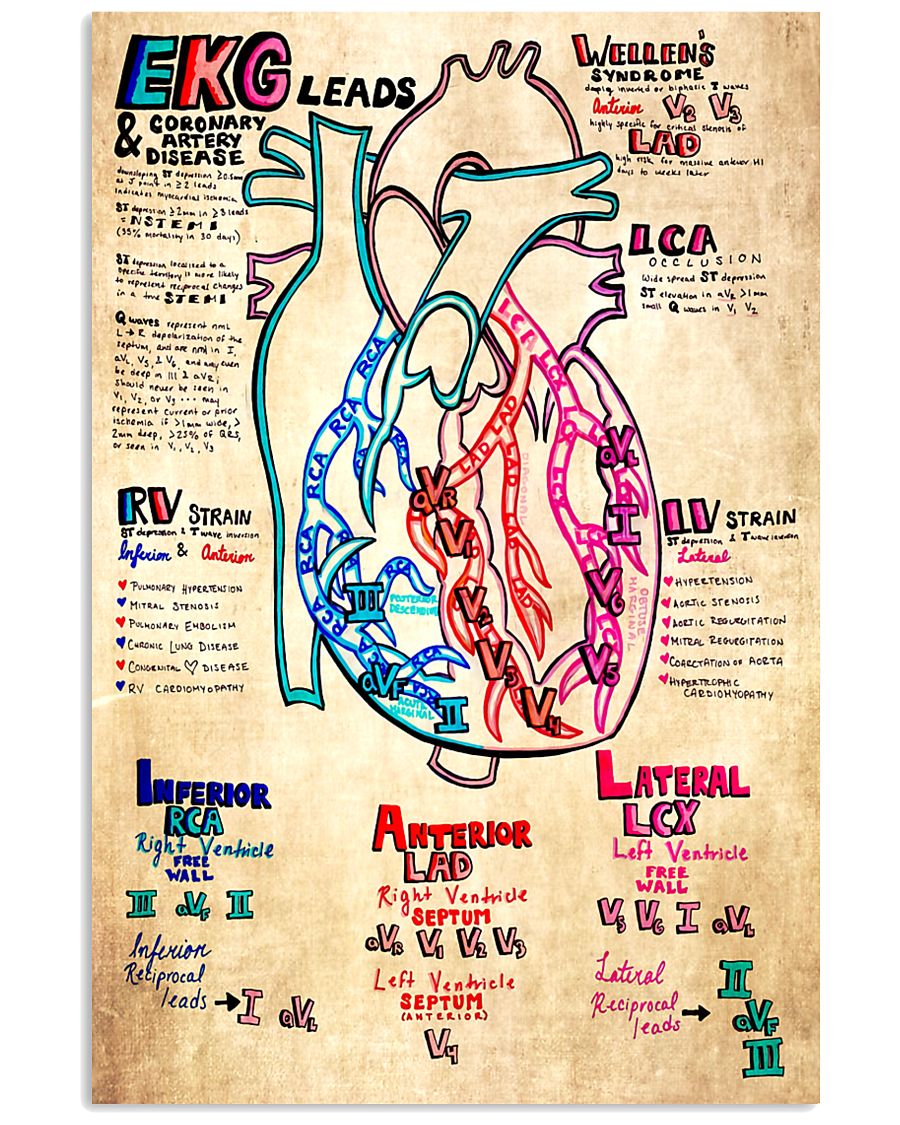 EKG LEADS
& CORONARY
ARTERY
DISEASE
downsloping ST depression ≥0.5mm
at J point in ≥2 leads
indicates myocardial ischemia
ST depression ≥2mm in ≥3 leads
= NSTEMI
(35% mortality in 30 days)
ST depression localized to a
specific territory is more likely
to represent reciprocal changes
in a true STEMI
Q waves represent nml
L→R depolarization of the
septum, and are nml in I,
aVL, V5, & V6, and may even
be deep in III & aVR;
should never be seen in
V1, V2, or V3 ... may
represent current or prior
ischemia if >1mm wide, >
2mm deep, >25% of QRS,
or seen in V1, V2, V3
WELLEN'S
SYNDROME
deeply inverted or biphasic T waves
Anterior V2 V3
highly specific for critical stenosis of
LAD
high risk for massive MI
days to weeks later
LCA
OCCLUSION
Wide spread ST depression
ST elevation in aVR >1mm
small Q waves in V1, V2
RV STRAIN
ST depression & T wave inversion
Inferior & Anterior
PULMONARY HYPERTENSION
MITRAL STENOSIS
PULMONARY EMBOLISM
CHRONIC LUNG DISEASE
CONGENITAL ♡ DISEASE
RV CARDIOMYOPATHY
LV STRAIN
ST depression & T wave inversion
Lateral
HYPERTENSION
AORTIC STENOSIS
AORTIC REGURGITATION
MITRAL REGURGITATION
COARCTATION OF AORTA
HYPERTROPHIC
CARDIOMYOPATHY
LCA
LCX
RCA
RCA
RCA
RCA
RCA
RCA
RCA
RCA
RCA
RCA
LAD
LAD
LAD
LAD
LAD
LCX
LCX
DIAGONAL
OBTUSE
MARGINAL
POSTERIOR
DESCENDING
ACUTE
MARGINAL
aVR
V1
V2
V3
V4
V5
V6
I
aVL
III
aVF
II
INFERIOR
RCA
Right Ventricle
FREE
WALL
III aVF II
Inferior
Reciprocal
leads → I aVL
ANTERIOR
LAD
Right Ventricle
SEPTUM
aVR V1 V2 V3
Left Ventricle
SEPTUM
(ANTERIOR)
V4
LATERAL
LCX
Left Ventricle
FREE
WALL
V5 V6 I aVL
Lateral
Reciprocal
leads →
II
aVF
III